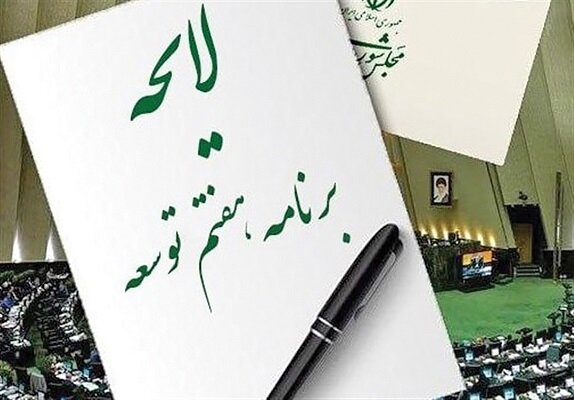 لایحه
برنامه هفتم توسعه
جمهوری اسلامی ایران
مجلس شورای